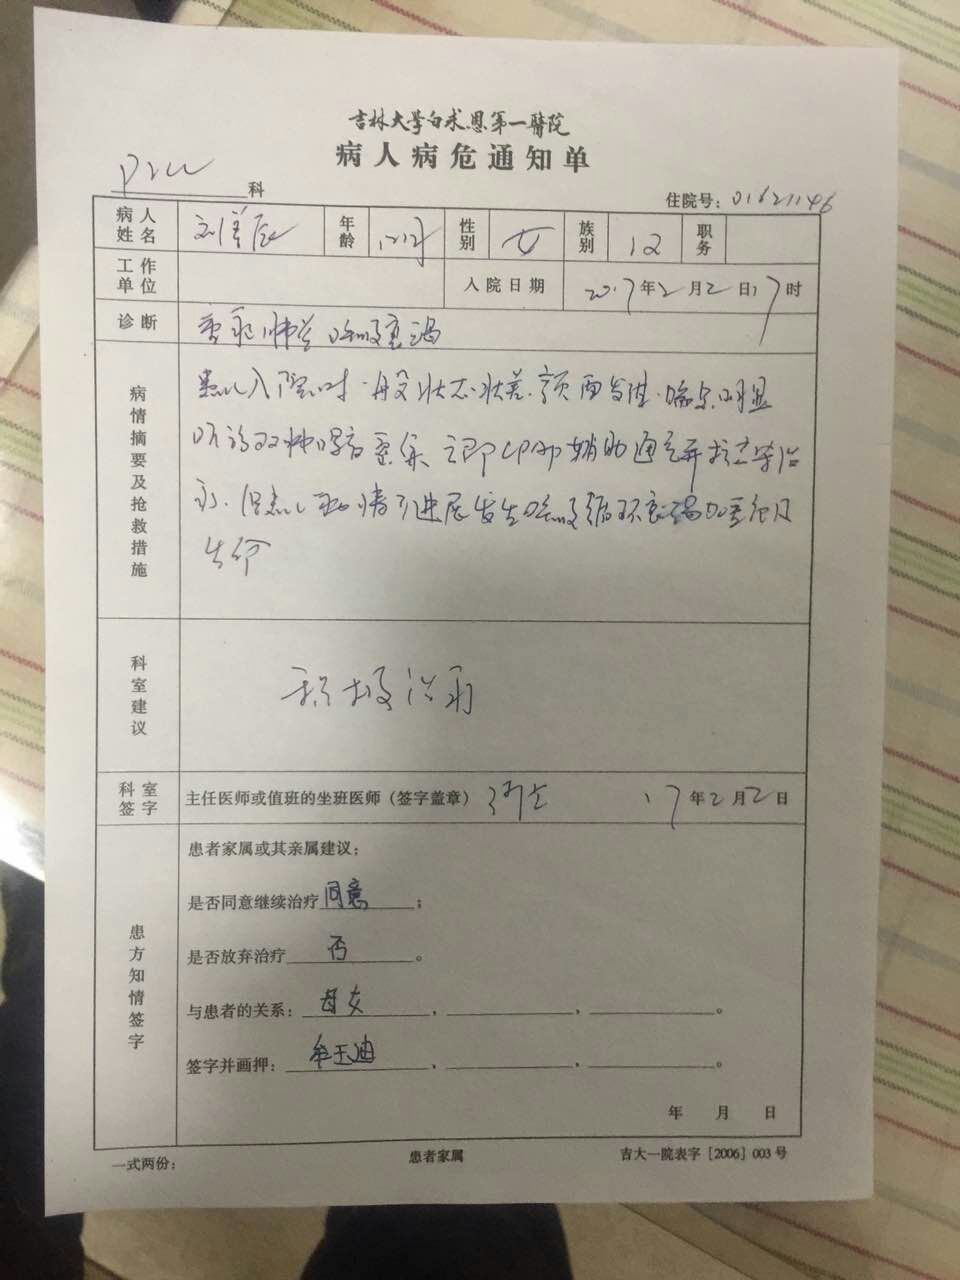 吉林大学白求恩第一醫院
病人病危通知单
PICU 科
住院号：01621146
病人姓名 年龄 性别 女 族别 汉 职务
工作单位 入院日期 2017年2月2日17时
诊断 重症肺炎 呼吸衰竭
病情摘要及抢救措施
患儿入院时一般状态 差 颜面发绀 喘息明显
双肺 音密集 立即 辅助通气并 等治
疗 但患儿 病情 进展发生呼吸循环衰竭 危及
生命
科室建议
积极治疗
科室签字 主任医师或值班的坐班医师（签字盖章） 17年2月2日
患方知情签字
患者家属或其亲属建议；
是否同意继续治疗 同意；
是否放弃治疗 否。
与患者的关系：母女，，。
签字并画押：牟玉迪，，。
年 月 日
一式两份； 患者家属 吉大一院表字［2006］003号